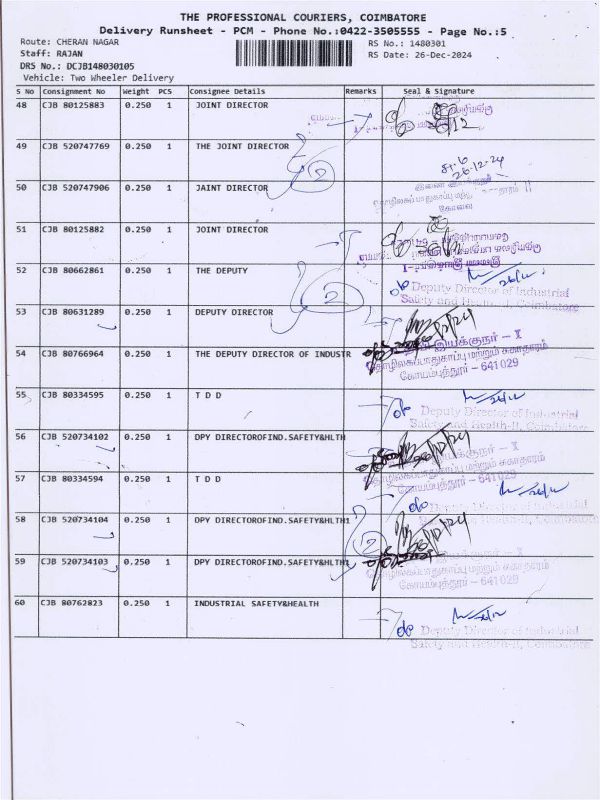 THE PROFESSIONAL COURIERS, COIMBATORE
Delivery Runsheet - PCM - Phone No.:0422-3505555 - Page No.:5
Route: CHERAN NAGAR
RS No.: 1480301
Staff: RAJAN
RS Date: 26-Dec-2024
DRS No.: DCJB148030105
Vehicle: Two Wheeler Delivery
S No Consignment No Weight PCS Consignee Details Remarks Seal & Signature
48 CJB 80125883 0.250 1 JOINT DIRECTOR
49 CJB 520747769 0.250 1 THE JOINT DIRECTOR
2
26-12-24
50 CJB 520747906 0.250 1 JAINT DIRECTOR
கோவை
51 CJB 80125882 0.250 1 JOINT DIRECTOR
52 CJB 80662861 0.250 1 THE DEPUTY
26/12
Deputy Director of Industrial
Safety and Health-II, Coimbatore
2
53 CJB 80631289 0.250 1 DEPUTY DIRECTOR
இயக்குநர் – X
54 CJB 80766964 0.250 1 THE DEPUTY DIRECTOR OF INDUSTR
தொழிலகப்பாதுகாப்பு மற்றும் சுகாதாரம்
கோயம்புத்தூர் – 641029
55 CJB 80334595 0.250 1 T D D
26/12
Deputy Director of Industrial
Safety and Health-II, Coimbatore
56 CJB 520734102 0.250 1 DPY DIRECTOROFIND.SAFETY&HLTH
இயக்குநர் – X
தொழிலகப்பாதுகாப்பு மற்றும் சுகாதாரம்
கோயம்புத்தூர் – 641029
57 CJB 80334594 0.250 1 T D D
26/12
Deputy Director of Industrial
Safety and Health-II, Coimbatore
58 CJB 520734104 0.250 1 DPY DIRECTOROFIND.SAFETY&HLTH1
2
இயக்குநர் – X
59 CJB 520734103 0.250 1 DPY DIRECTOROFIND.SAFETY&HLTH1
தொழிலகப்பாதுகாப்பு மற்றும் சுகாதாரம்
கோயம்புத்தூர் – 641029
60 CJB 80762823 0.250 1 INDUSTRIAL SAFETY&HEALTH
26/12
Deputy Director of Industrial
Safety and Health-II, Coimbatore